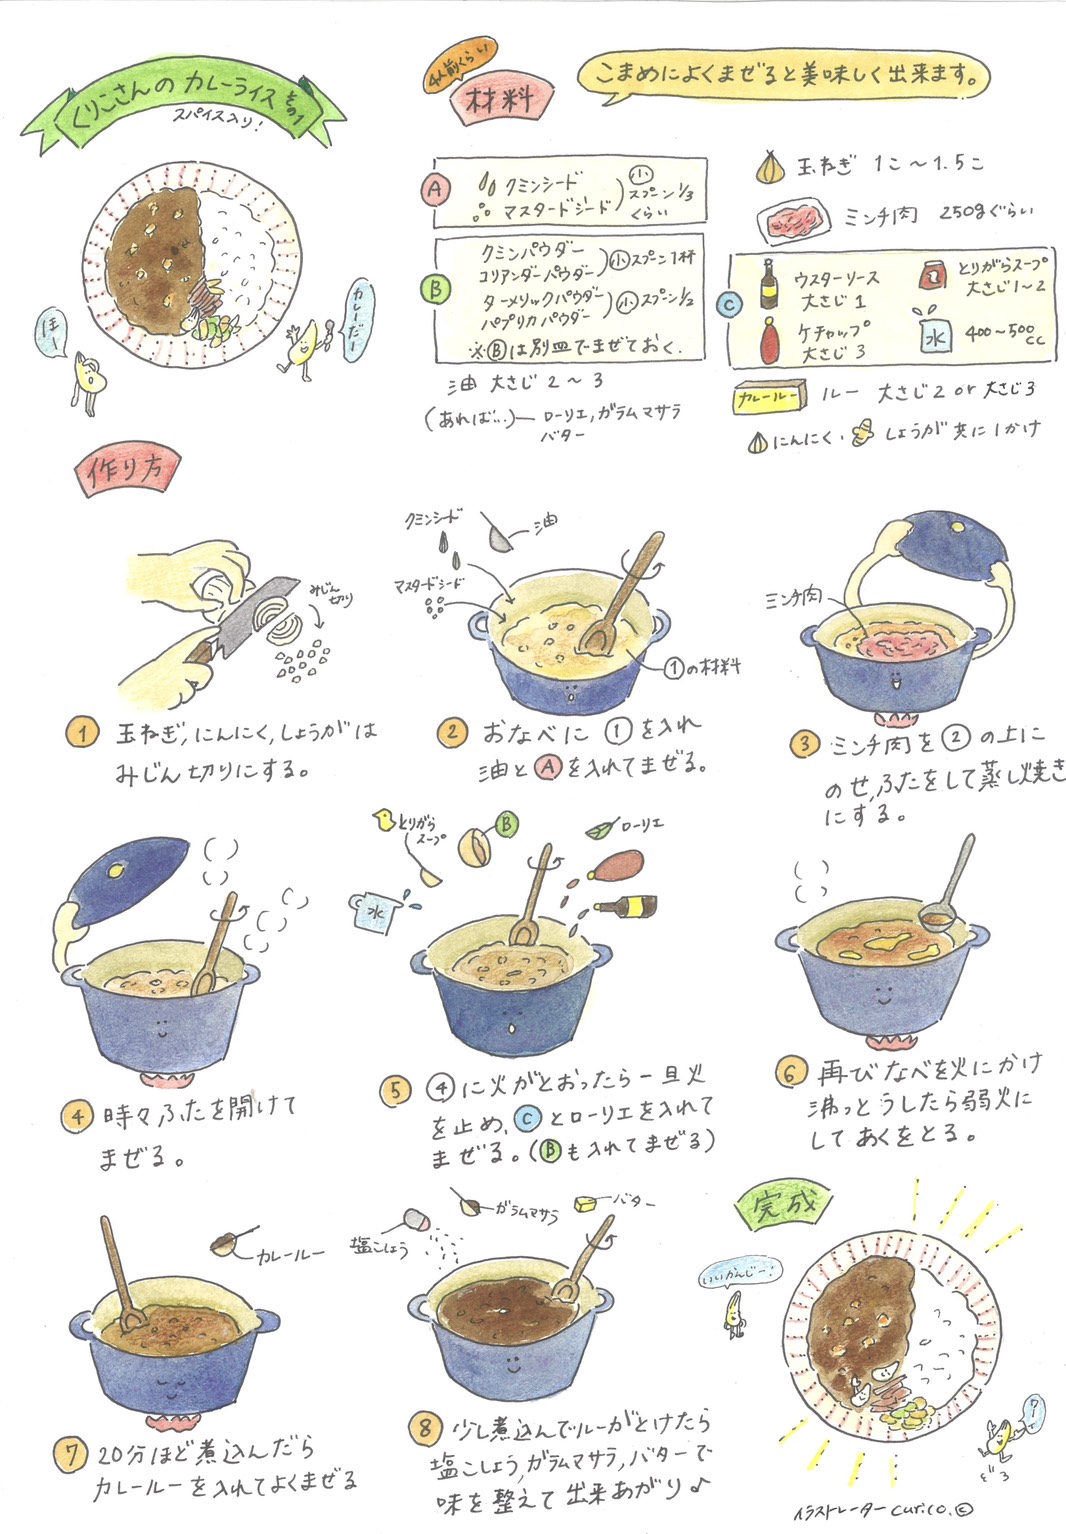 くりこさんのカレーライス その1
スパイス入り!
4人前くらい
材料
こまめによくまぜると美味しく出来ます。
ほー
カレーだー
A
クミンシード
マスタードシード
小
スプーン1/3
くらい
B
クミンパウダー
コリアンダーパウダー
小スプーン1杯
ターメリックパウダー
パプリカパウダー
小スプーン1/2
※Bは別皿でまぜておく.
油 大さじ2〜3
(あれば…)― ローリエ,ガラムマサラ
バター
玉ねぎ 1こ〜1.5こ
ミンチ肉 250gぐらい
C
ウスターソース
大さじ1
ケチャップ
大さじ3
とりがらスープ
大さじ1〜2
水
400〜500
cc
カレールー
ルー 大さじ2 or 大さじ3
にんにく、しょうが 共に1かけ
作り方
みじん
切り
① 玉ねぎ,にんにく,しょうがは
みじん切りにする。
クミンシード
油
マスタードシード
①の材料
② おなべに①を入れ
油とAを入れてまぜる。
ミンチ肉
③ ミンチ肉を②の上に
のせ,ふたをして蒸し焼き
にする。
④ 時々ふたを開けて
まぜる。
とりがら
スープ
B
ローリエ
水
⑤ ④に火がとおったら一旦火
を止め、Cとローリエを入れて
まぜる。(Bも入れてまぜる)
⑥ 再びなべを火にかけ
沸っとうしたら弱火に
してあくをとる。
カレールー
⑦ 20分ほど煮込んだら
カレールーを入れてよくまぜる
塩こしょう
ガラムマサラ
バター
⑧ 少し煮込んでルーがとけたら
塩こしょう,ガラムマサラ,バターで
味を整えて出来あがり♪
完成
いいかんじー!
ワー
イラストレーター curico.©